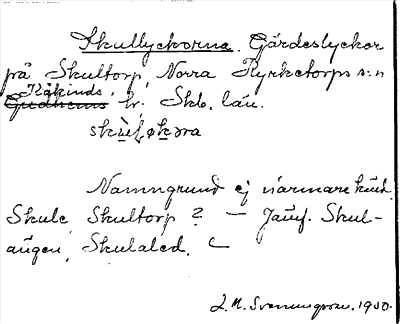 Skullyckorna. Gärdeslyckor
på Skultorp, Norra Kyrketorps s:n
Kåkinds
Gudhems hr. Skb. län.
Namngrund ej närmare känd.
Skule, Skultorp? — Jämf. Skul-
ängen, Skulaled.
1930.